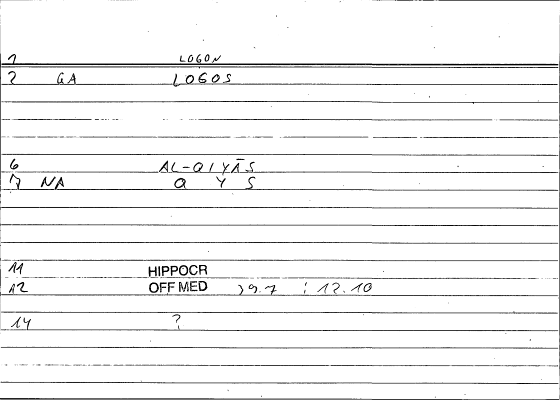 1 LOGON
2 GA LOGOS
6 AL-QIYĀS
7 NA Q Y S
11 HIPPOCR
12 OFF MED 29.7 : 12.10
14 ?